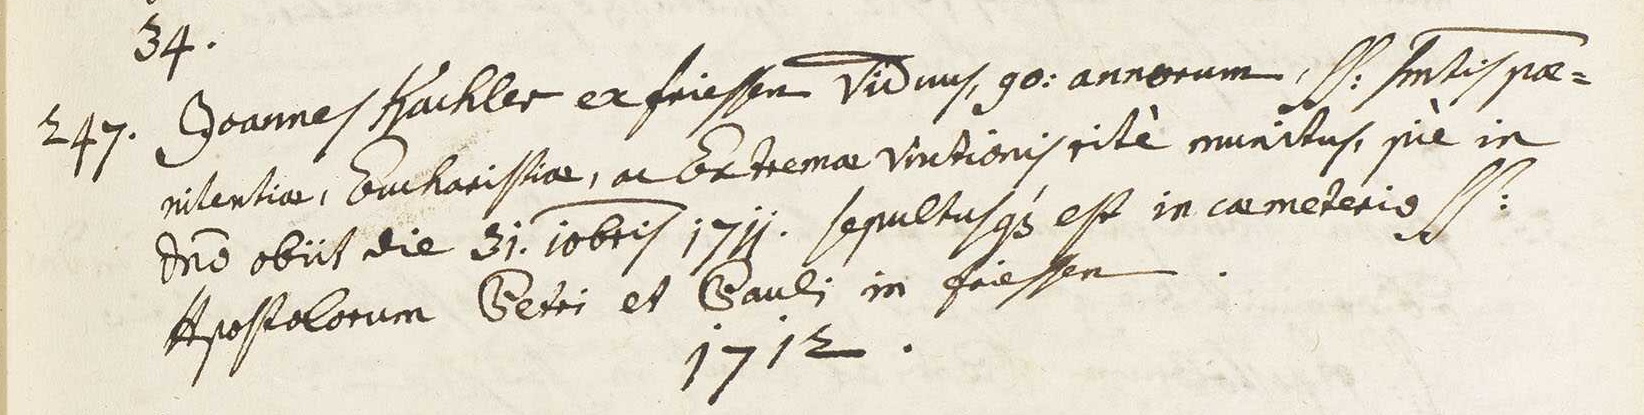 34.
247. Joannes Kachler ex friessen Viduus, 90: annorum, SS: Smtis pœ=
nitentiæ, Eucharistiæ, ac Extremæ Unctionis ritè munitus, piè in
Dno obiit die 31. 10bris 1711. sepultusq3 est in cæmeterio SS:
Apostolorum Petri et Pauli in friessen .
1712.